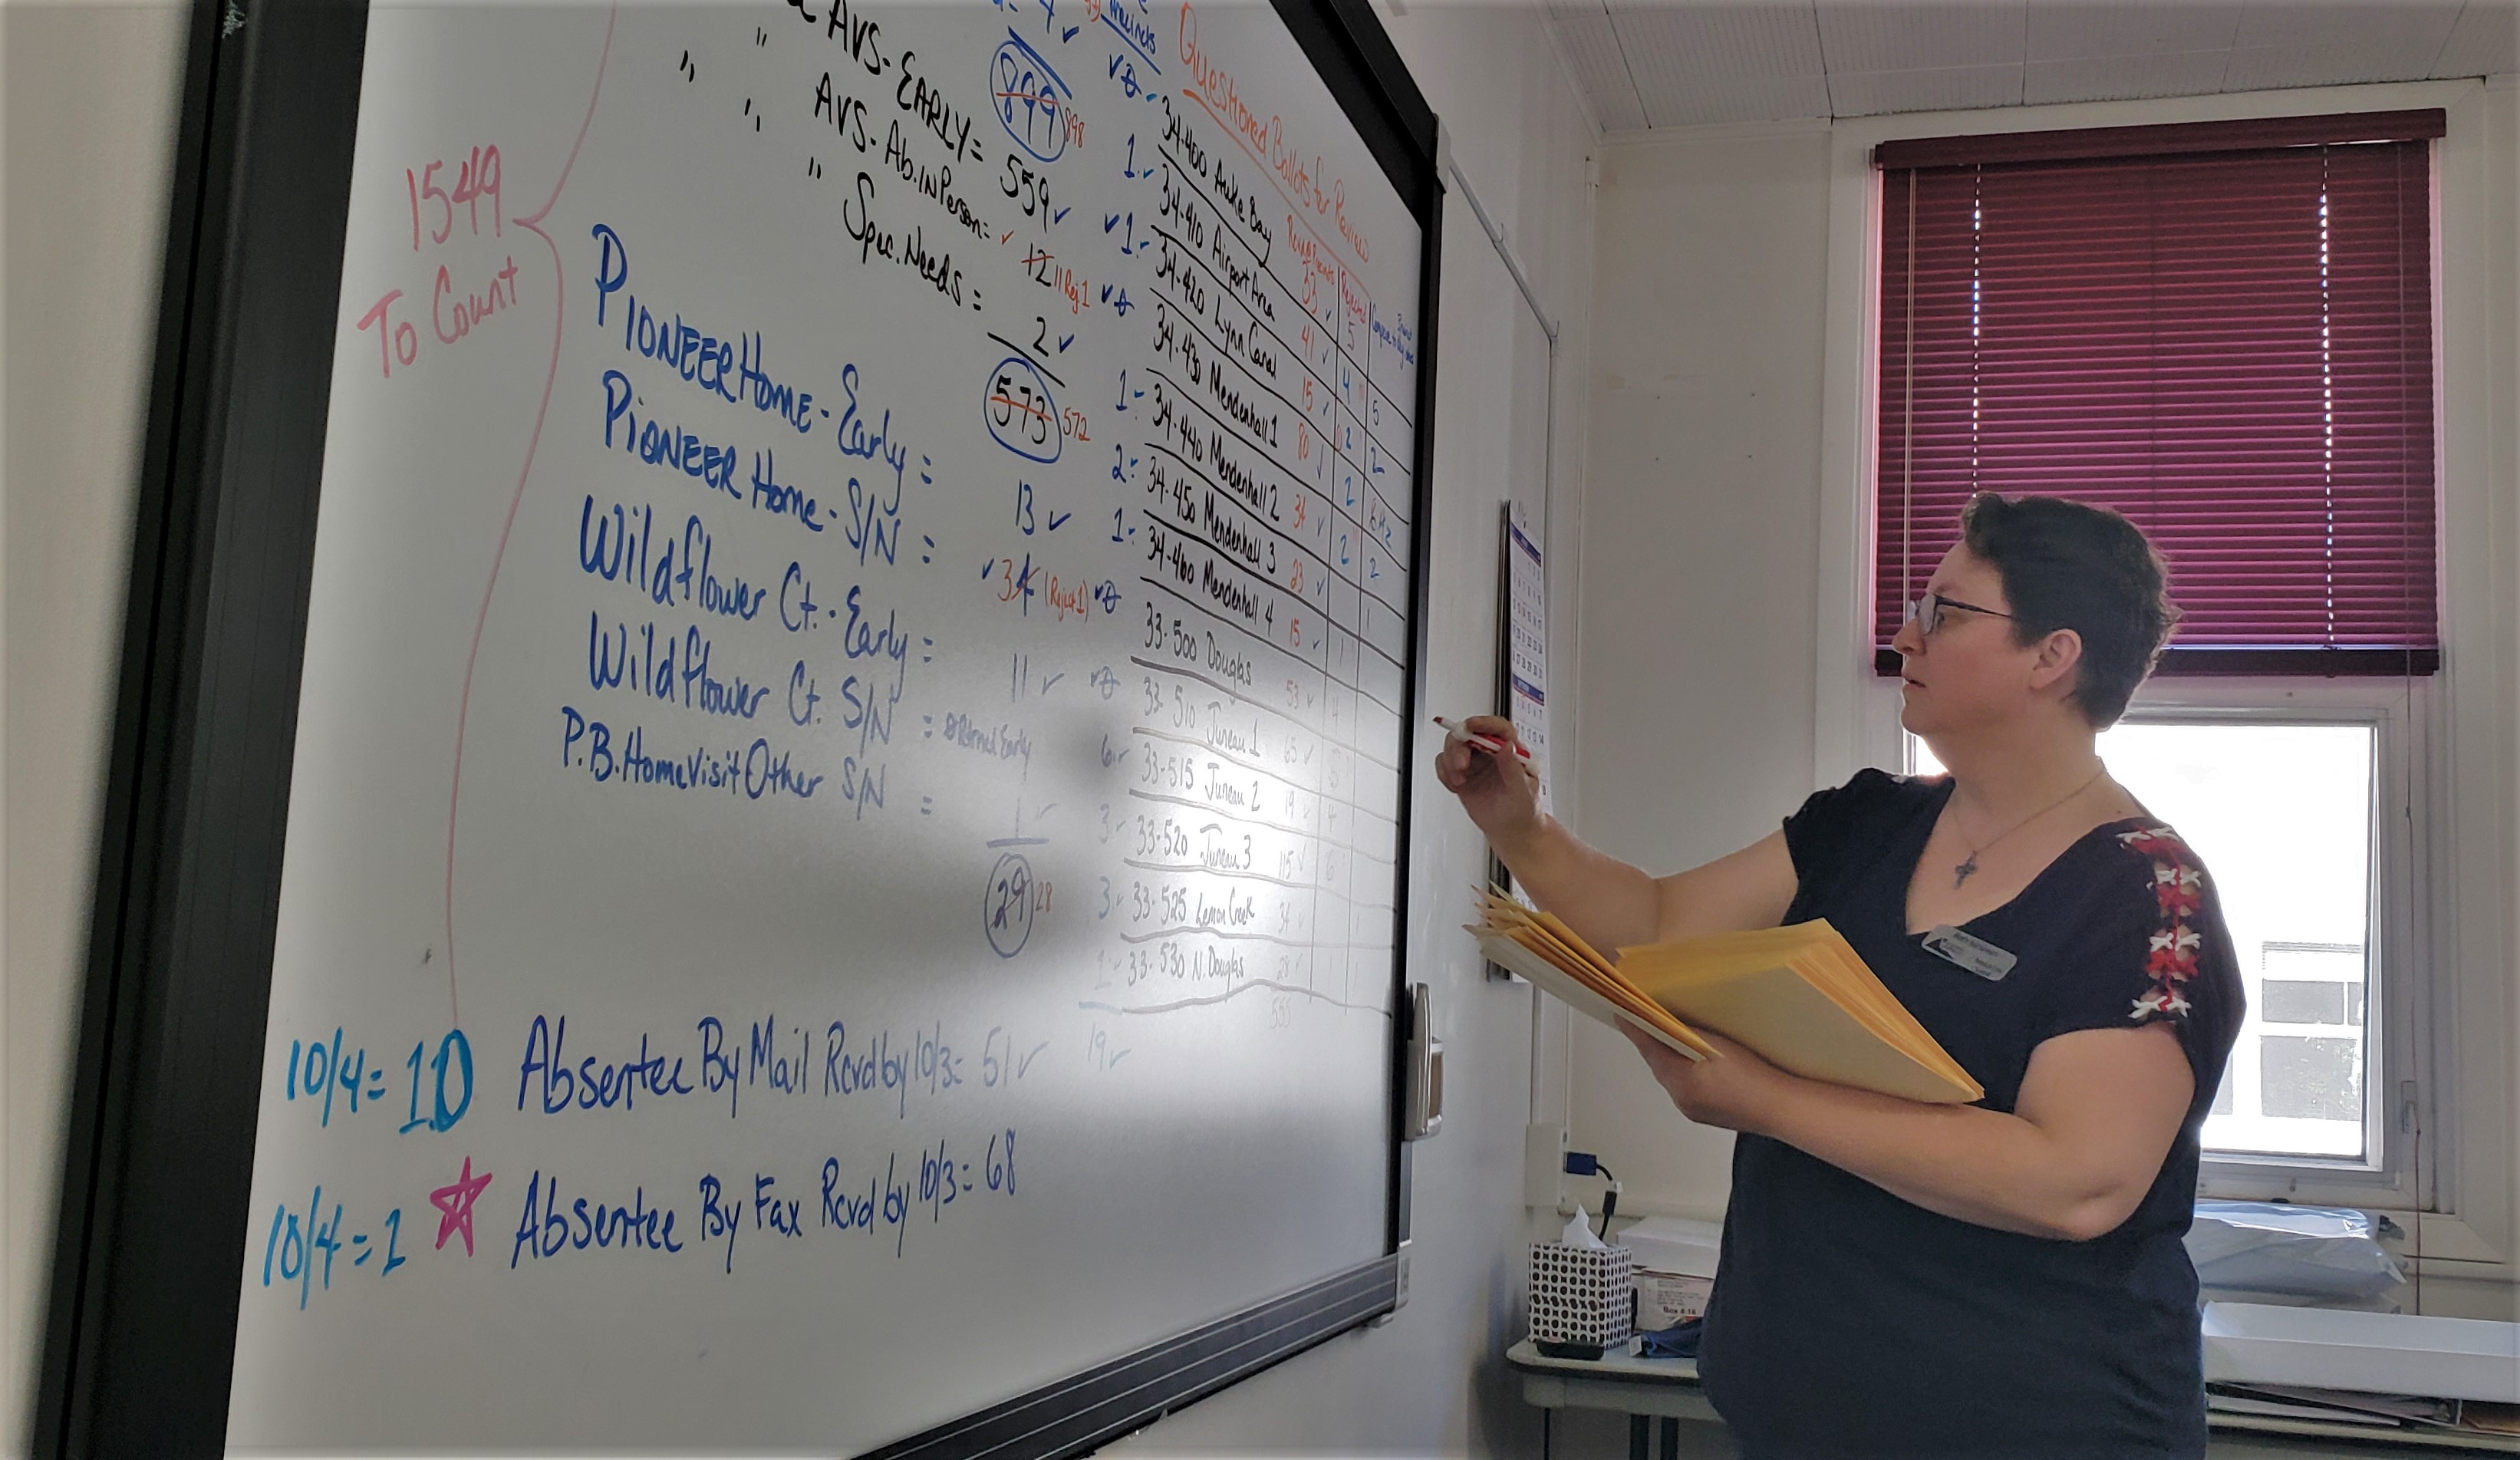 AVS-EARLY= 559 ✓
" AVS-Ab.InPerson= ✓ 12 11 Rej 1
" Spec.Needs = 2 ✓
899 898
573 572
1549
To Count
PIONEER Home - Early = 13 ✓
PIONEER Home - S/N = ✓ 3 (Reject 1)
Wildflower Ct. - Early = 11 ✓
Wildflower Ct. S/N =
P.B. HomeVisit Other S/N = 1 ✓
29 28
10/4= 10 Absentee By Mail Rcvd by 10/3= 51 ✓
10/4=1 Absentee By Fax Rcvd by 10/3= 68
Precincts
Questioned Ballots for Review
Rejected
34-400 Auke Bay 33 ✓ 5
1 34-410 Airport Area 41 ✓ 4 5
✓ 1 34-420 Lynn Canal 15 ✓ 2 2
34-430 Mendenhall 1 80 ✓ 2
1 34-440 Mendenhall 2 34 ✓ 2 2
2 34-450 Mendenhall 3 23 ✓ 1
1 34-460 Mendenhall 4 15 ✓ 1
33-500 Douglas 53 ✓ 4
33-510 Juneau 1 65 ✓ 5
6 33-515 Juneau 2 19 ✓ 4
3 33-520 Juneau 3 115 ✓ 6
3 33-525 Lemon Creek 34
1 33-530 N. Douglas 28
19 ✓ 555
Box # 16